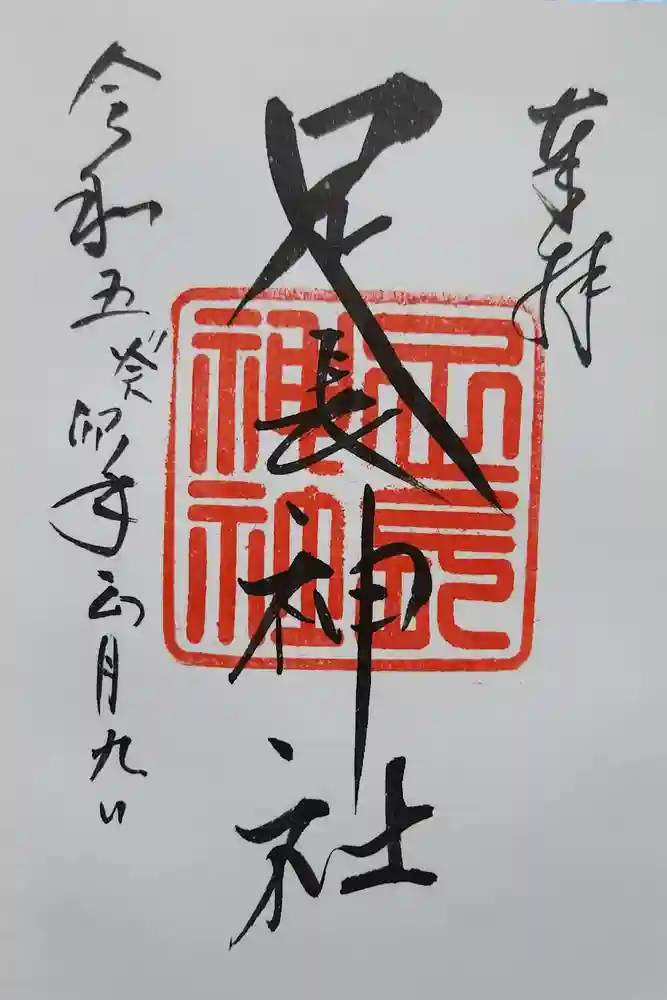 奉拝
足長神社
足長
神社
令和五癸卯年正月九日